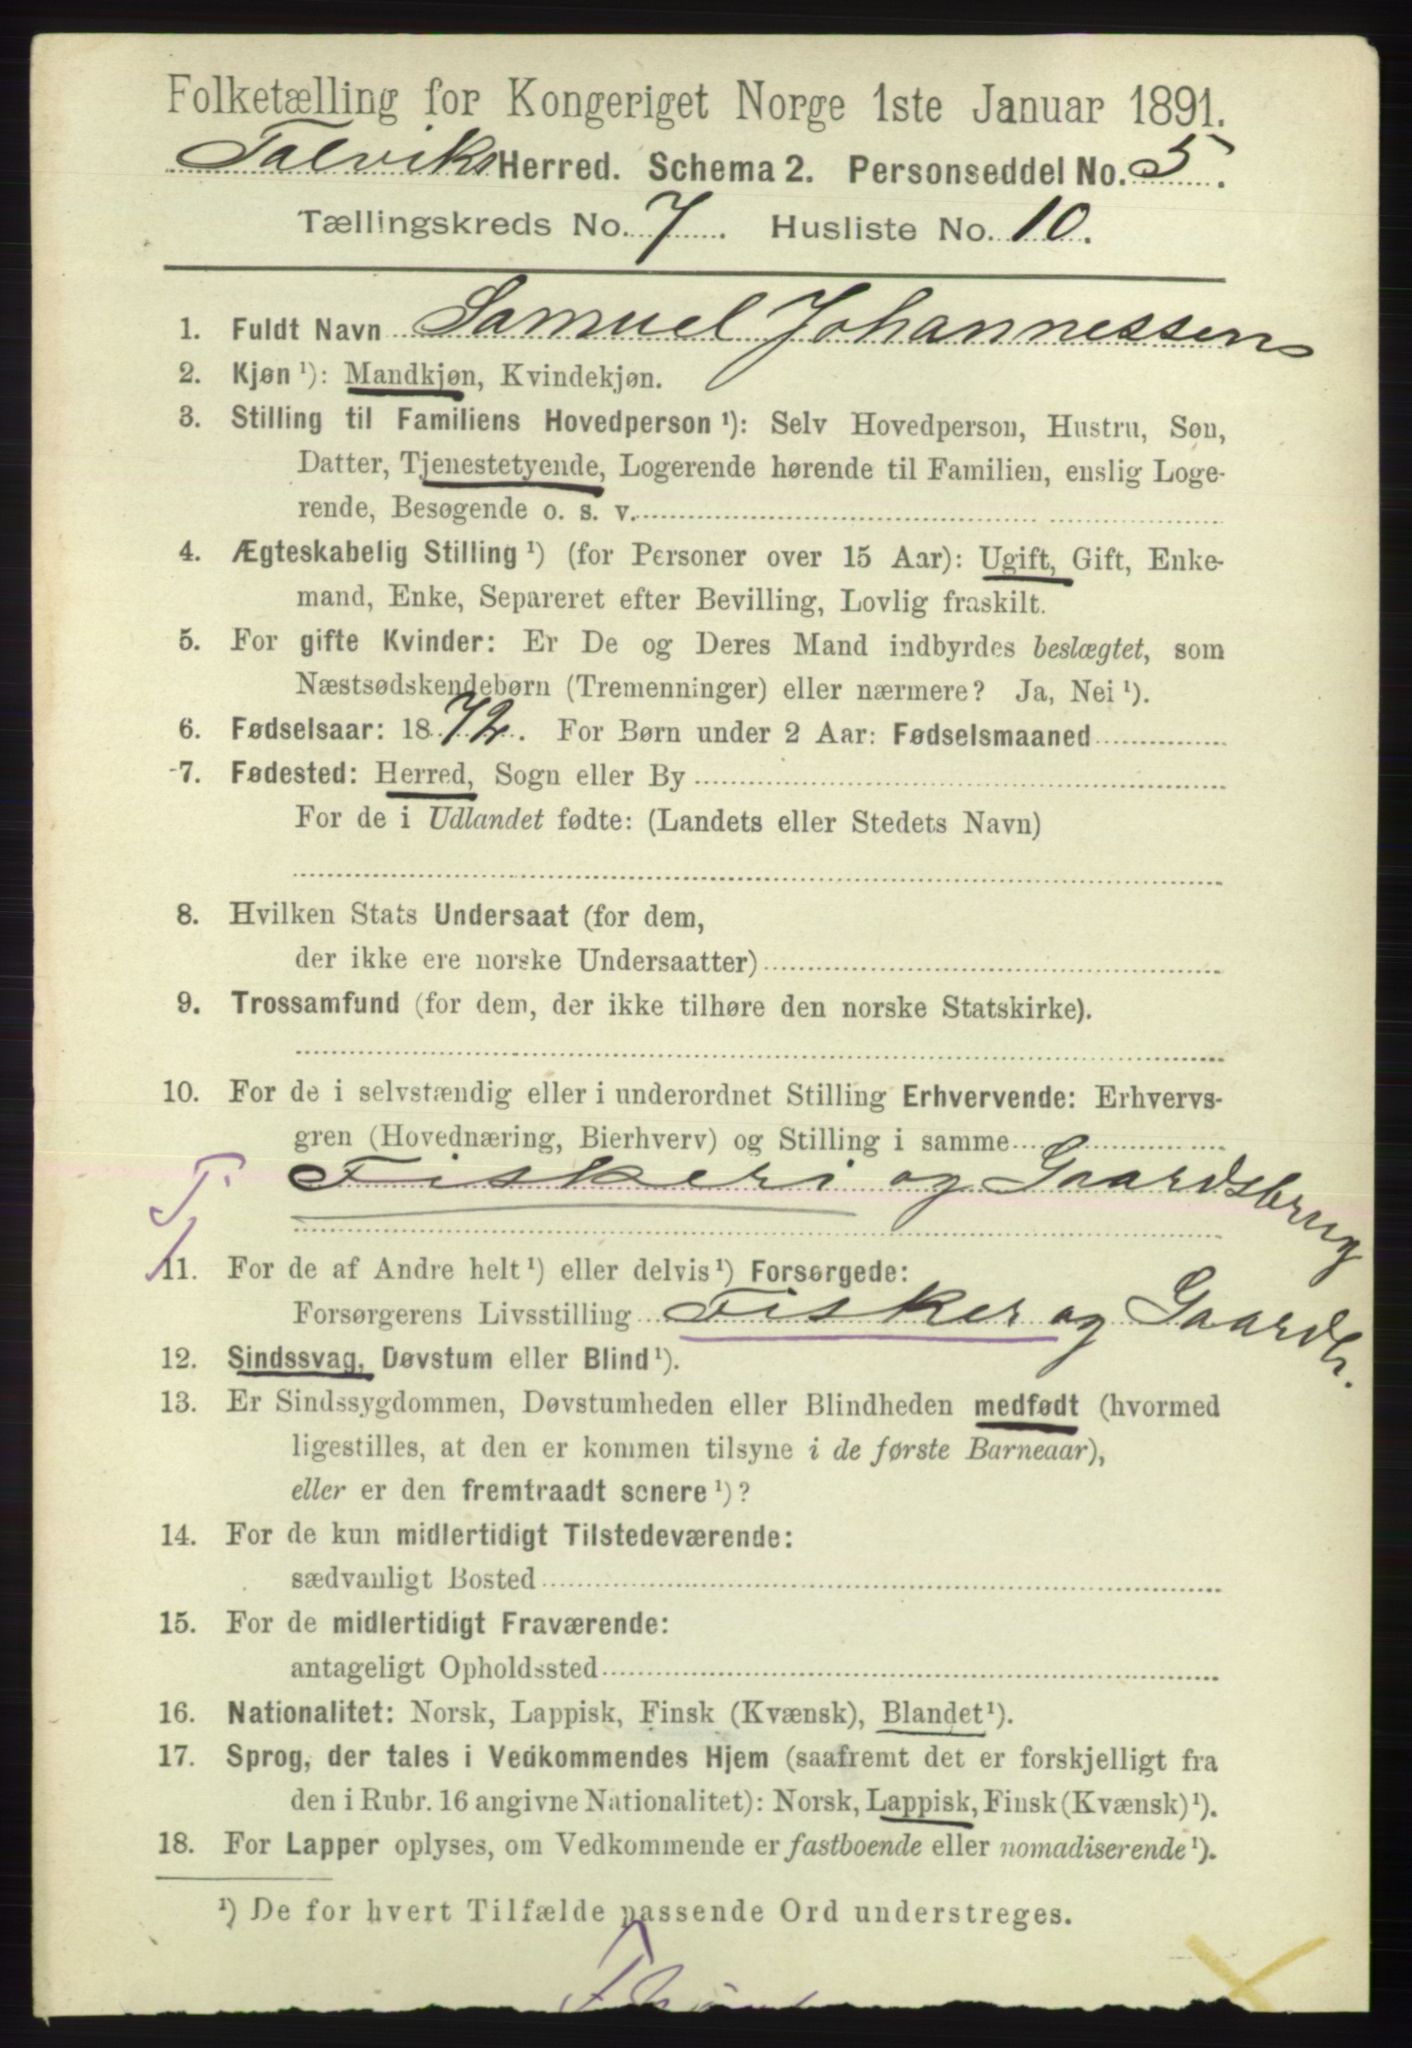 Folketælling for Kongeriget Norge 1ste Januar 1891.
Talviks Herred. Schema 2. Personseddel No. 5.
Tællingskreds No. 7. Husliste No. 10.
1. Fuldt Navn Samuel Johannessen
2. Kjøn ¹): Mandkjøn, Kvindekjøn.
3. Stilling til Familiens Hovedperson ¹): Selv Hovedperson, Hustru, Søn,
Datter, Tjenestetyende, Logerende hørende til Familien, enslig Loge-
rende, Besøgende o. s. v.
4. Ægteskabelig Stilling ¹) (for Personer over 15 Aar): Ugift, Gift, Enke-
mand, Enke, Separeret efter Bevilling, Lovlig fraskilt.
5. For gifte Kvinder: Er De og Deres Mand indbyrdes beslægtet, som
Næstsødskendebørn (Tremenninger) eller nærmere? Ja, Nei ¹).
6. Fødselsaar: 1872. For Børn under 2 Aar: Fødselsmaaned
7. Fødested: Herred, Sogn eller By
For de i Udlandet fødte: (Landets eller Stedets Navn)
8. Hvilken Stats Undersaat (for dem,
der ikke ere norske Undersaatter)
9. Trossamfund (for dem, der ikke tilhøre den norske Statskirke).
10. For de i selvstændig eller i underordnet Stilling Erhvervende: Erhvervs-
gren (Hovednæring, Bierhverv) og Stilling i samme
T. Fiskeri og Gaardsbrug
11. For de af Andre helt ¹) eller delvis ¹) Forsørgede:
Forsørgerens Livsstilling Fisker og Gaardb.
12. Sindssvag, Døvstum eller Blind ¹).
13. Er Sindssygdommen, Døvstumheden eller Blindheden medfødt (hvormed
ligestilles, at den er kommen tilsyne i de første Barneaar),
eller er den fremtraadt senere ¹)?
14. For de kun midlertidigt Tilstedeværende:
sædvanligt Bosted
15. For de midlertidigt Fraværende:
antageligt Opholdssted
16. Nationalitet: Norsk, Lappisk, Finsk (Kvænsk), Blandet ¹).
17. Sprog, der tales i Vedkommendes Hjem (saafremt det er forskjelligt fra
den i Rubr. 16 angivne Nationalitet): Norsk, Lappisk, Finsk (Kvænsk) ¹).
18. For Lapper oplyses, om Vedkommende er fastboende eller nomadiserende ¹).
¹) De for hvert Tilfælde passende Ord understreges.